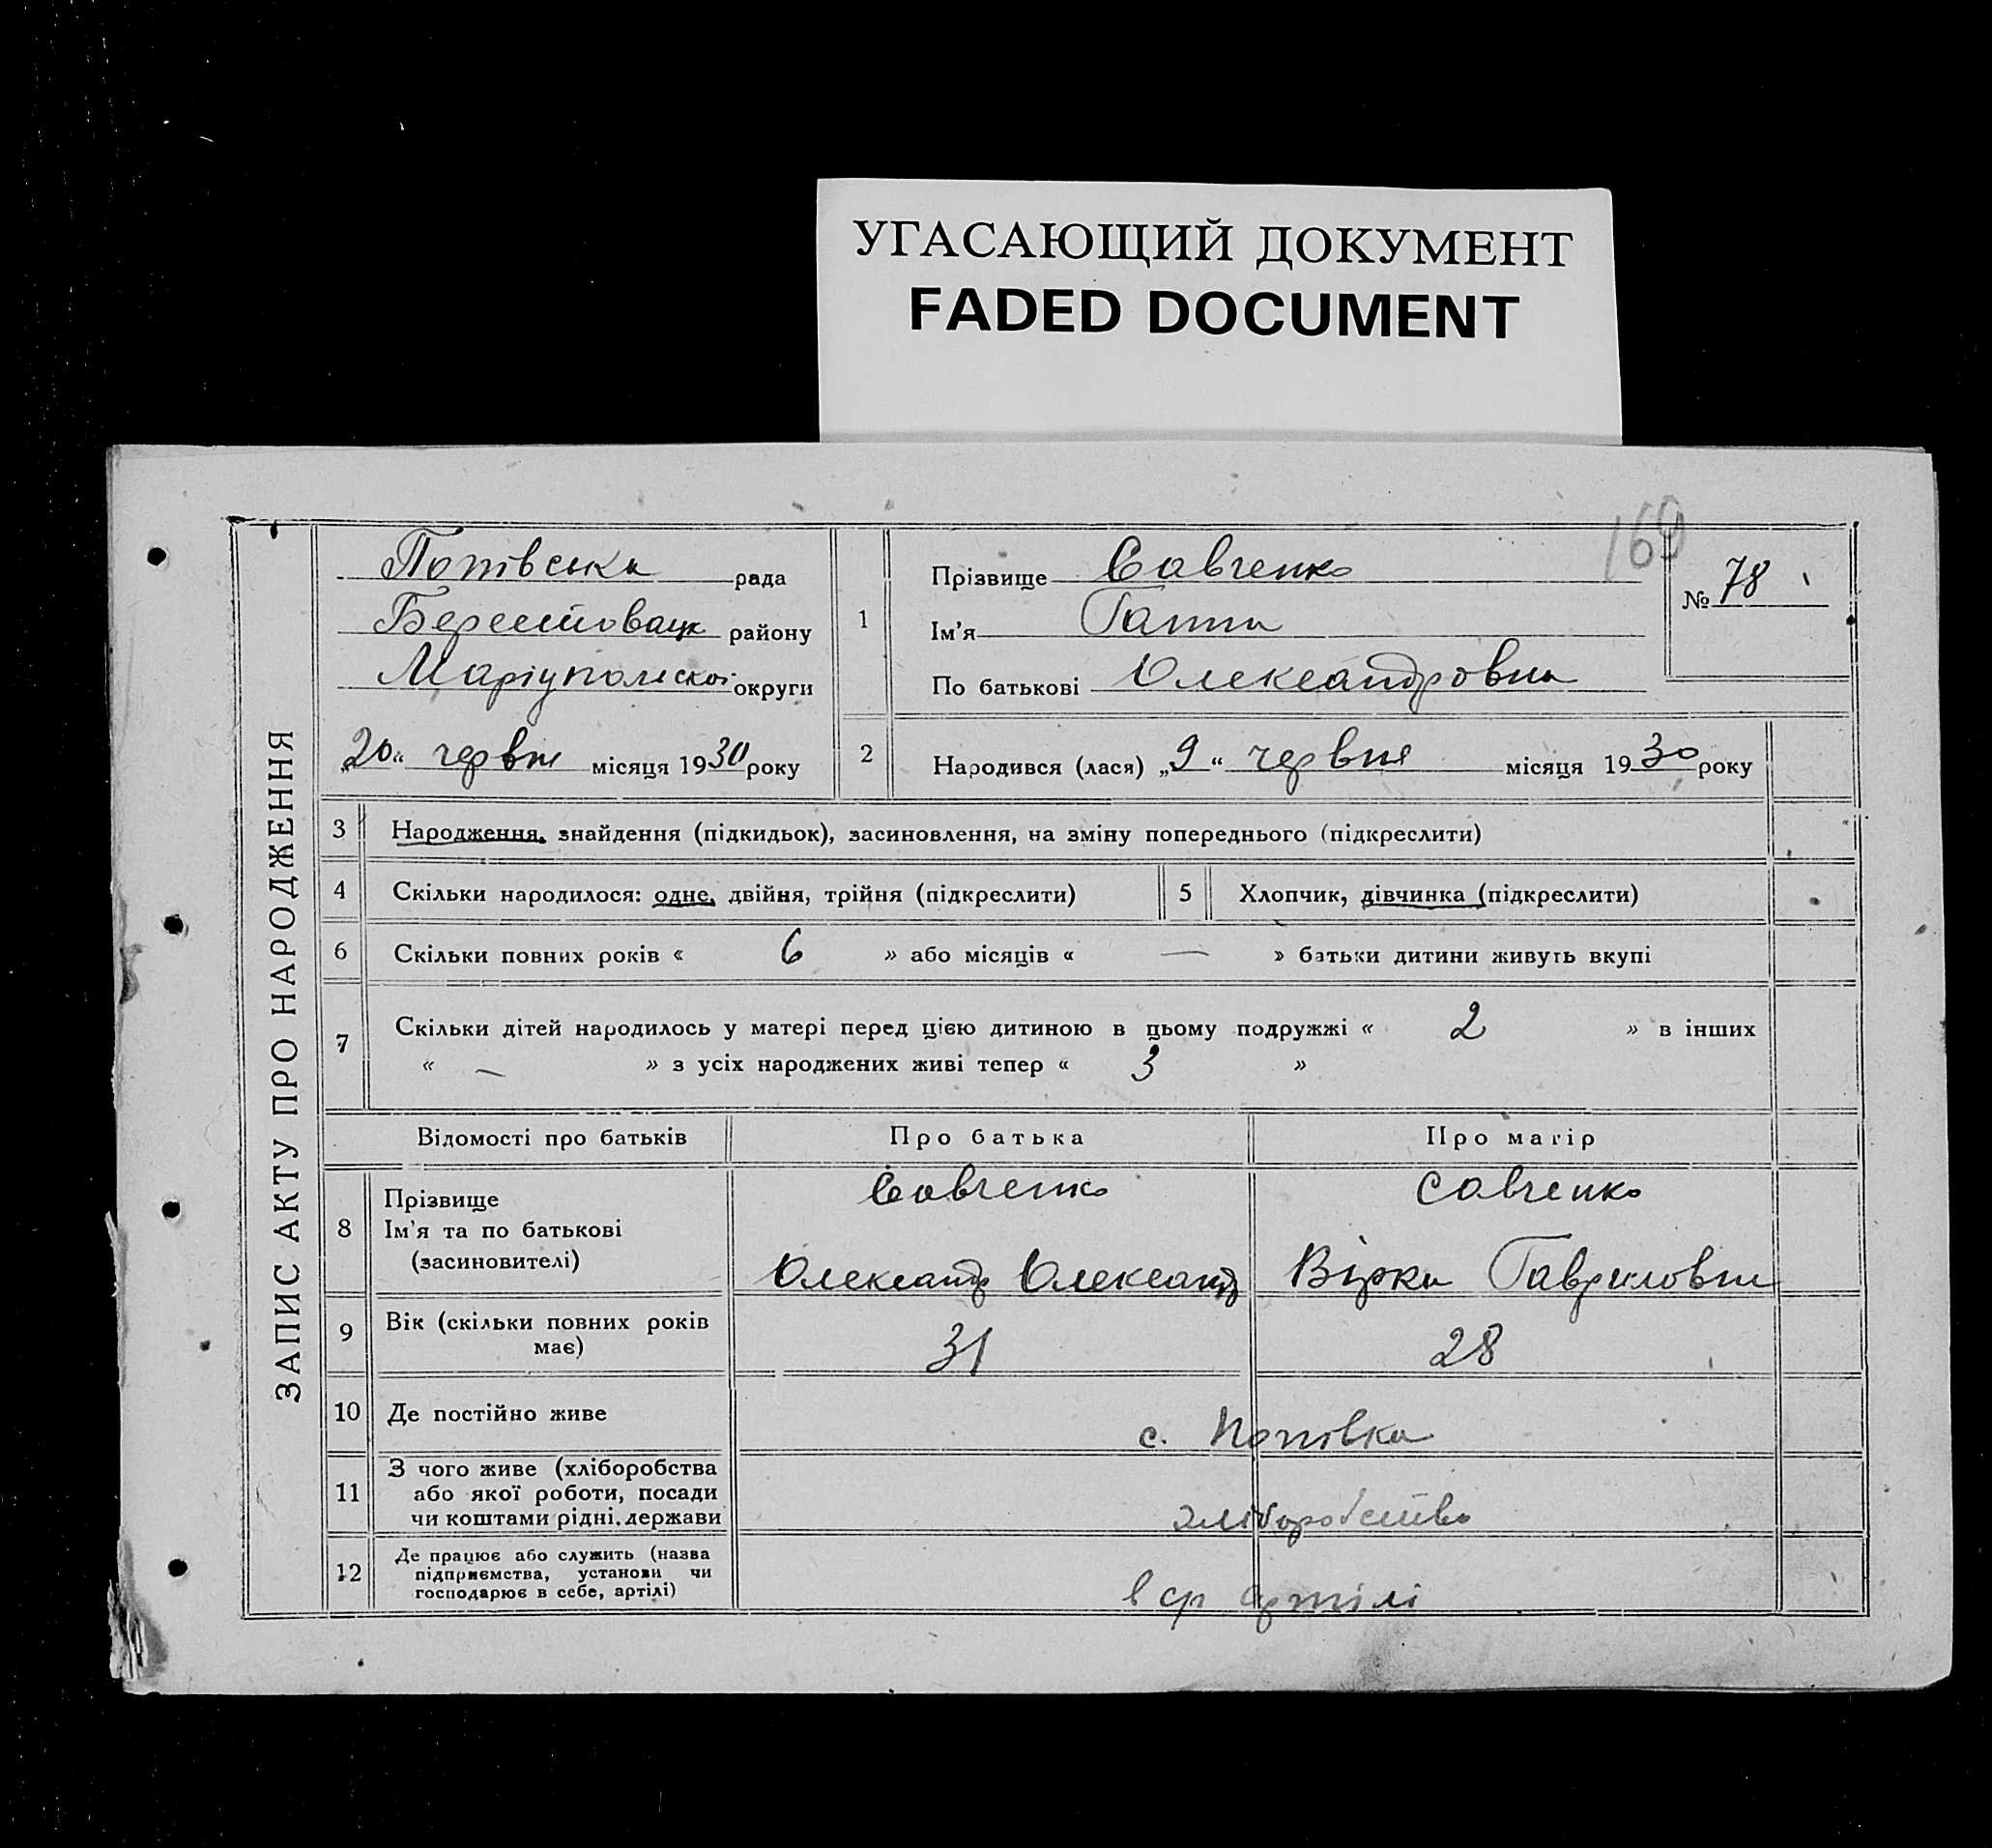 УГАСАЮЩИЙ ДОКУМЕНТ
FADED DOCUMENT
169
ЗАПИС АКТУ ПРО НАРОДЖЕННЯ
Попівська рада
Берестовацк району
Маріупольскої округи
„20“ червня місяця 1930 року
1
Прізвище Савченко
Ім'я Ганна
По батькові Олександровна
№ 78
2
Народився (лася) „9“ червня місяця 1930 року
3 Народження, знайдення (підкидьок), засиновлення, на зміну попереднього (підкреслити)
4 Скільки народилося: одне, двійня, трійня (підкреслити) 5 Хлопчик, дівчинка (підкреслити)
6 Скільки повних років « 6 » або місяців « — » батьки дитини живуть вкупі
7 Скільки дітей народилось у матері перед цією дитиною в цьому подружжі « 2 » в інших
« — » з усіх народжених живі тепер « 3 »
Відомості про батьків Про батька Про матір
8 Прізвище Савченко Савченко
Ім'я та по батькові
(засиновителі) Олександр Олександ Вірка Гавриловна
9 Вік (скільки повних років
має) 31 28
10 Де постійно живе с. Попівка
11 З чого живе (хліборобства
або якої роботи, посади
чи коштами рідні, держави хліборобство
12 Де працює або служить (назва
підприємства, установи чи
господарює в себе, артілі) в ср артілі